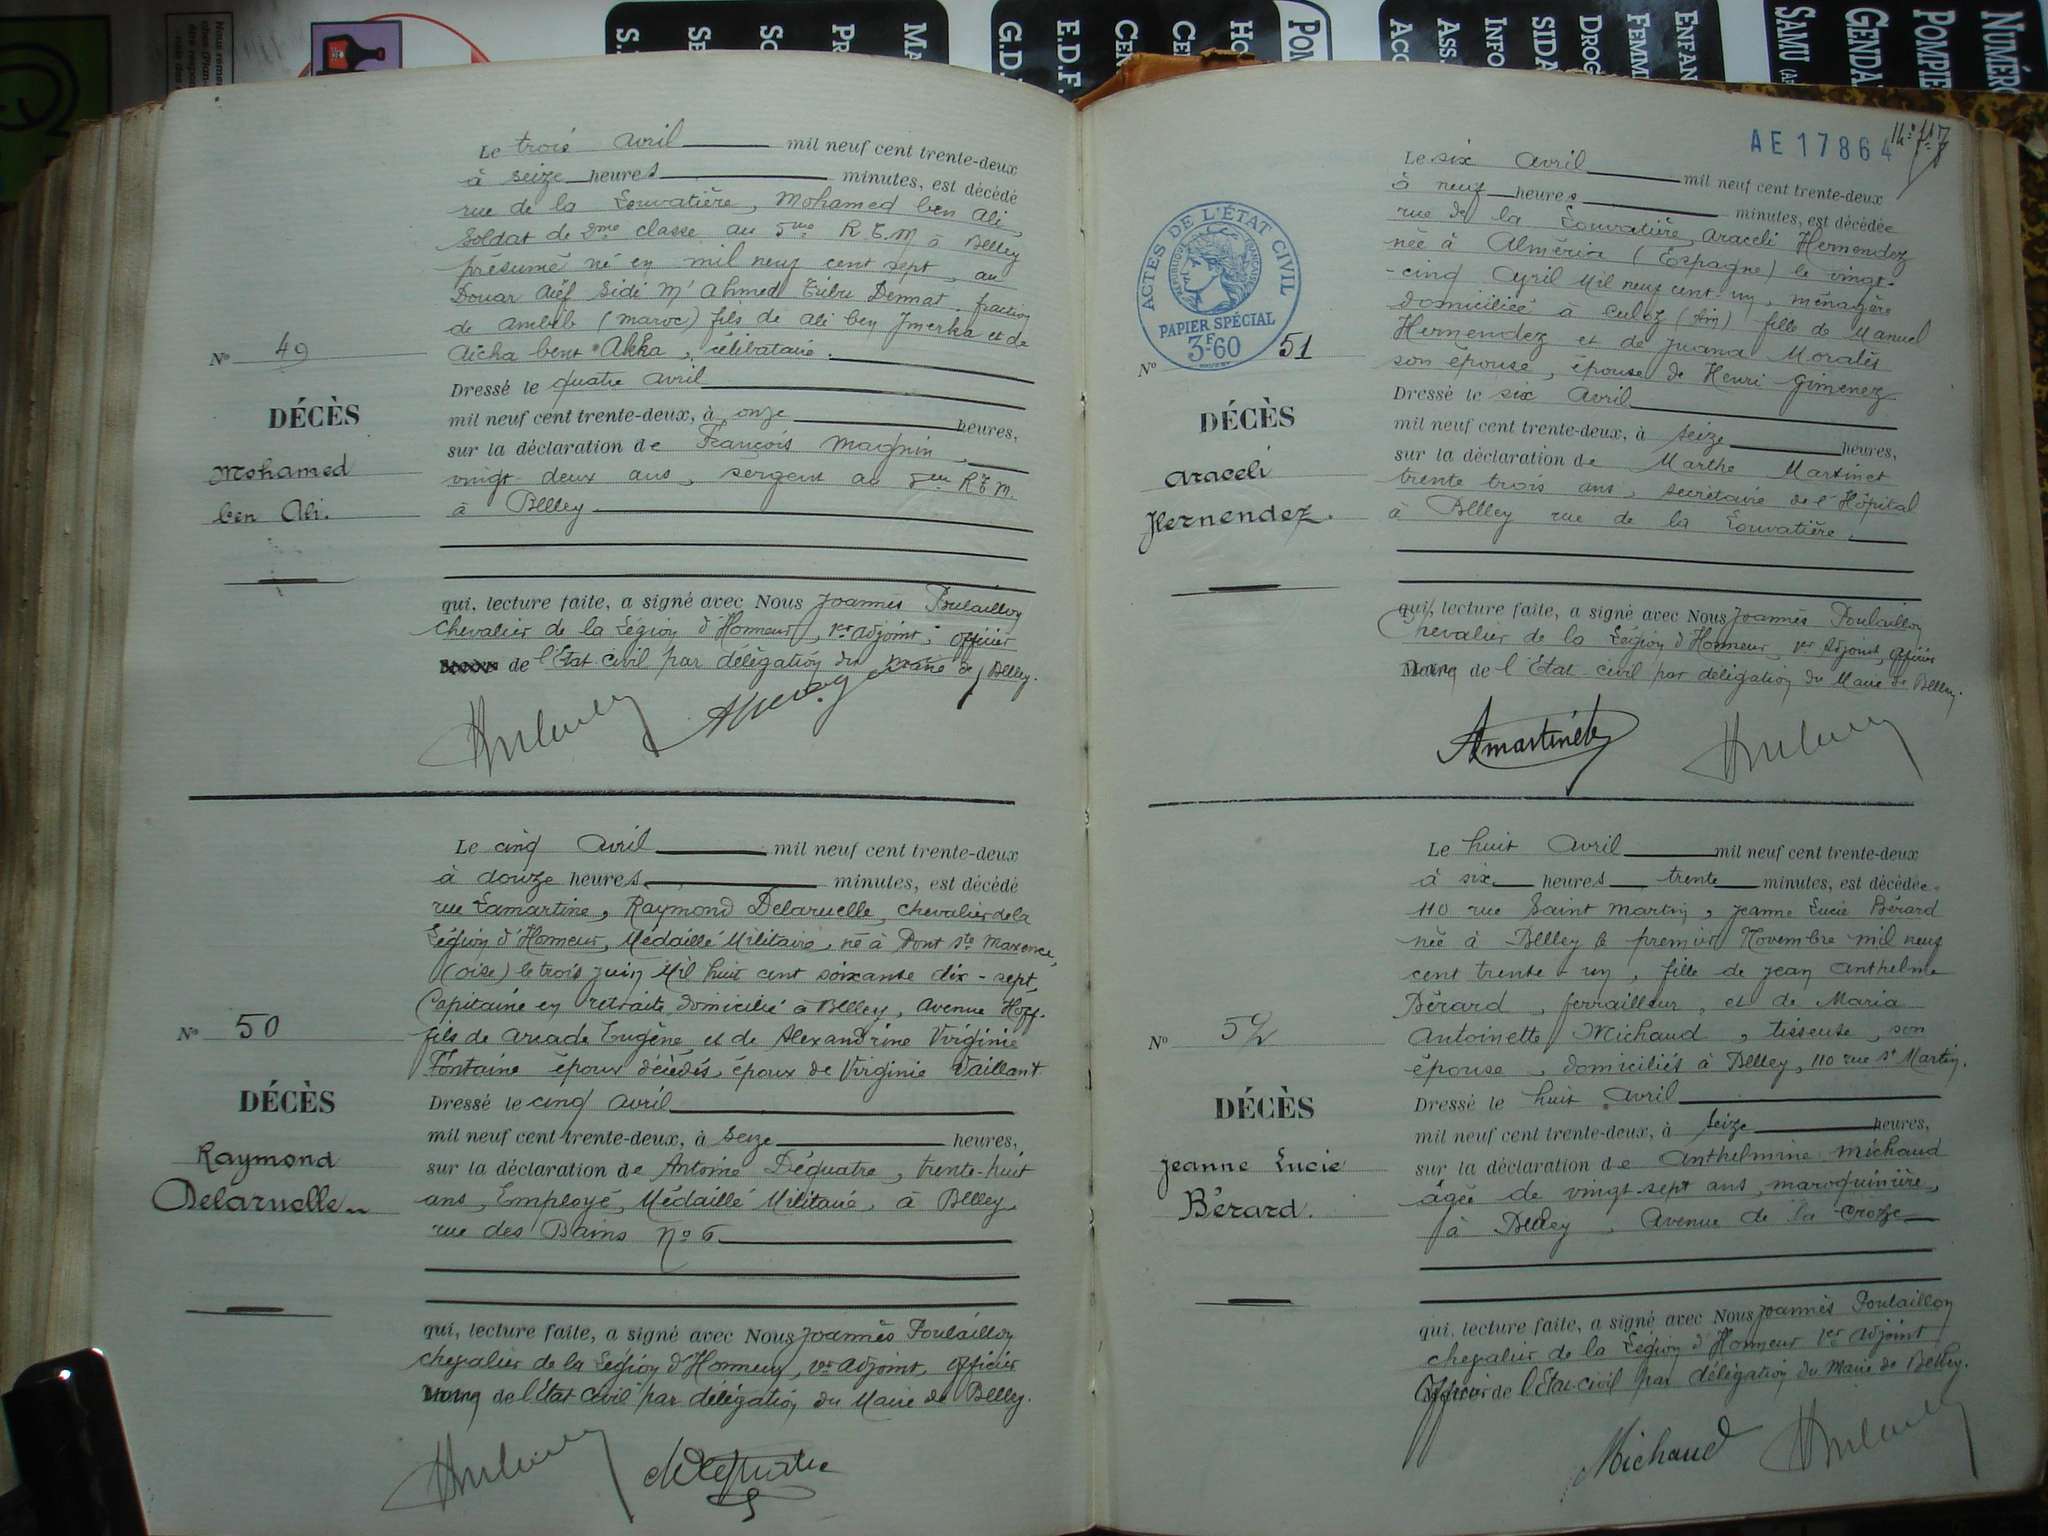 MA
PR
SO
SE
S.
G.D.
E.D.F.
CEN
CE
HO
POM
ACC
ASS.
INFO
SIDA
DROG
FEMM
ENFAN
SAMU
GENDA
POMPIE
NUMÉRO
Le trois avril mil neuf cent trente-deux
à seize heures minutes, est décédé
rue de la Louvatière, Mohamed ben Ali,
soldat de 2me classe au 5me R.T.M à Belley
présumé né en mil neuf cent sept, au
Douar Aïef Sidi M'Ahmed Dennat, fraction
de (Maroc) fils de Ali ben Jmerka et de
Aïcha bent Akka, célibataire.
No 49
DÉCÈS
Mohamed
ben Ali.
Dressé le quatre avril
mil neuf cent trente-deux, à onze heures,
sur la déclaration de François Magnin,
vingt-deux ans, sergent au 5me R.T.M.
à Belley
qui, lecture faite, a signé avec Nous Joannès Poulaillon
Chevalier de la Légion d'Honneur, 1er adjoint, officier
de l'Etat-civil par délégation du Maire de Belley.
Le cinq avril mil neuf cent trente-deux
à douze heures minutes, est décédé
rue Lamartine, Raymond Delaruelle, chevalier de la
Légion d'Honneur, Médaillé Militaire, né à Pont Ste Maxence,
(Oise) le trois juin Mil huit cent soixante dix-sept,
Capitaine en retraite, domicilié à Belley, avenue Hoff.
fils de Arcade Eugène et de Alexandrine Virginie
Fontaine époux décédés, époux de Virginie Vaillant
No 50
DÉCÈS
Raymond
Delaruelle
Dressé le cinq avril
mil neuf cent trente-deux, à seize heures,
sur la déclaration de Antoine Déquatre, trente-huit
ans, Employé, Médaillé Militaire, à Belley
rue des Bains No 6
qui, lecture faite, a signé avec Nous Joannès Poulaillon
chevalier de la Légion d'Honneur, 1er adjoint, officier
de l'Etat civil par délégation du Maire de Belley.
AE 17864
Le six avril mil neuf cent trente-deux
à neuf heures minutes, est décédée
rue de la Louvatière, Araceli Hernendez
née à Alméria (Espagne) le vingt-
-cinq Avril Mil neuf cent-un, ménagère
domiciliée à Culoz (Ain) fille de Manuel
Hernendez et de Juana Moralès
son épouse, épouse de Henri Gimenez
ACTES DE L'ÉTAT CIVIL
RÉPUBLIQUE FRANÇAISE
PAPIER SPÉCIAL
3F60
No 51
DÉCÈS
Araceli
Hernendez.
Dressé le six avril
mil neuf cent trente-deux, à seize heures,
sur la déclaration de Marthe Martinet
trente trois ans, secrétaire de l'Hôpital
à Belley rue de la Louvatière.
qui, lecture faite, a signé avec Nous Joannès Poulaillon
Chevalier de la Légion d'Honneur, 1er Adjoint, officier
de l'Etat-civil par délégation du Maire de Belley.
AMartinet
Le huit avril mil neuf cent trente-deux
à six heures trente minutes, est décédée
110 rue Saint Martin, Jeanne Lucie Bérard
née à Belley le premier Novembre mil neuf
cent trente-un, fille de Jean Anthelme
Bérard, ferrailleur, et de Maria
Antoinette Michaud, tisseuse, son
épouse, domiciliés à Belley, 110 rue St Martin.
No 52
DÉCÈS
Jeanne Lucie
Bérard.
Dressé le huit avril
mil neuf cent trente-deux, à seize heures,
sur la déclaration de Anthelmine Michaud
âgée de vingt-sept ans, maroquinière,
à Belley, Avenue de la Croze
qui, lecture faite, a signé avec Nous Joannès Poulaillon
chevalier de la Légion d'Honneur 1er adjoint
Officier de l'Etat-civil par délégation du Maire de Belley.
Michaud